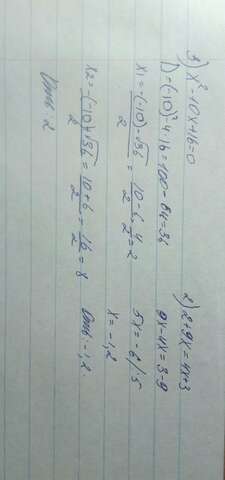 1) x²-10x+16=0
D=(-10)²-4·16=100-64=36
x1=-(-10)-√36/2=10-6/2=4/2=2
x2=-(-10)+√36/2=10+6/2=16/2=8
Отв: 2
2) 2+9x=4x+3
9x-4x=3-9
5x=-6/:5
x=-1,2
Отв: -1,2.